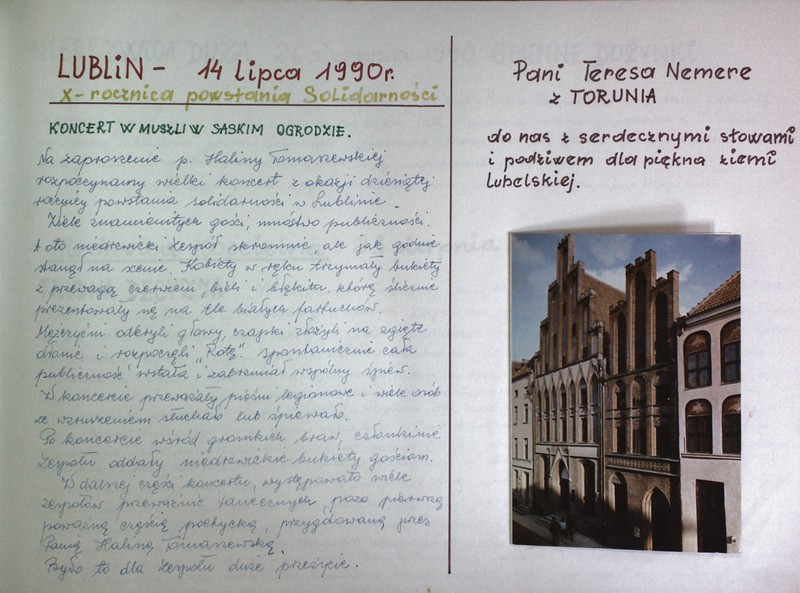 LUBLIN - 14 lipca 1990r.
X-rocznica powstania Solidarności
KONCERT W MUSZLI W SASKIM OGRODZIE.
Na zaproszenie p. Haliny Tomaszewskiej
rozpoczynamy wielki koncert z okazji dziesiątej
rocznicy powstania solidarności w Lublinie.
Wiele znamienitych gości, mnóstwo publiczności.
A oto niedrzwicki zespół skromnie ale jak godnie
stanął na scenie. Kobiety w ręku trzymały bukiety
z przewagą czerwieni bieli i błękitu, które ślicznie
prezentowały się na tle białych fartuchów.
Mężczyźni odkryli głowy, czapki złożyli na zgięte
dłonie i rozpoczęli "Rotę". spontanicznie cała
publiczność wstała i zabrzmiał wspólny śpiew.
W koncercie przeważały pieśni legionowe i wiele osób
ze wzruszeniem słuchało lub śpiewało.
Po koncercie wśród gromkich braw, członkinie
zespołu oddały niedrzwickie bukiety gościom.
W dalszej części koncertu, występowało wiele
zespołów przeważnie tanecznych, poza pierwszą
poważną częścią poetycką, przygotowaną przez
Panią Halinę Tomaszewską.
Było to dla zespołu duże przeżycie.
Pani Teresa Nemere
z TORUNIA
do nas z serdecznymi słowami
i podziwem dla piękna ziemi
lubelskiej.